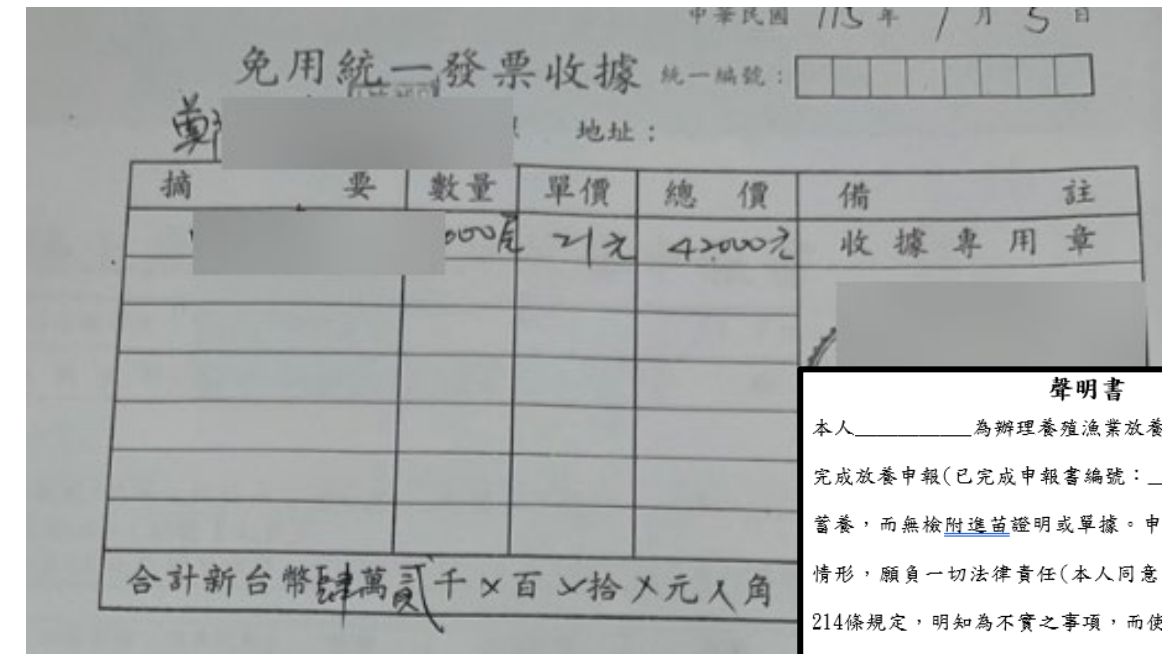 中華民國 115 年 1 月 5 日
免用統一發票收據 統一編號：
鄭 地址：
摘要 數量 單價 總價 備註
000尾 21元 42000元 收據專用章
合計新台幣肆萬貳千×百×拾×元×角
聲明書
本人__________為辦理養殖漁業放養
完成放養申報(已完成申報書編號：_
蓄養，而無檢附進苗證明或單據。申
情形，願負一切法律責任(本人同意
214條規定，明知為不實之事項，而使